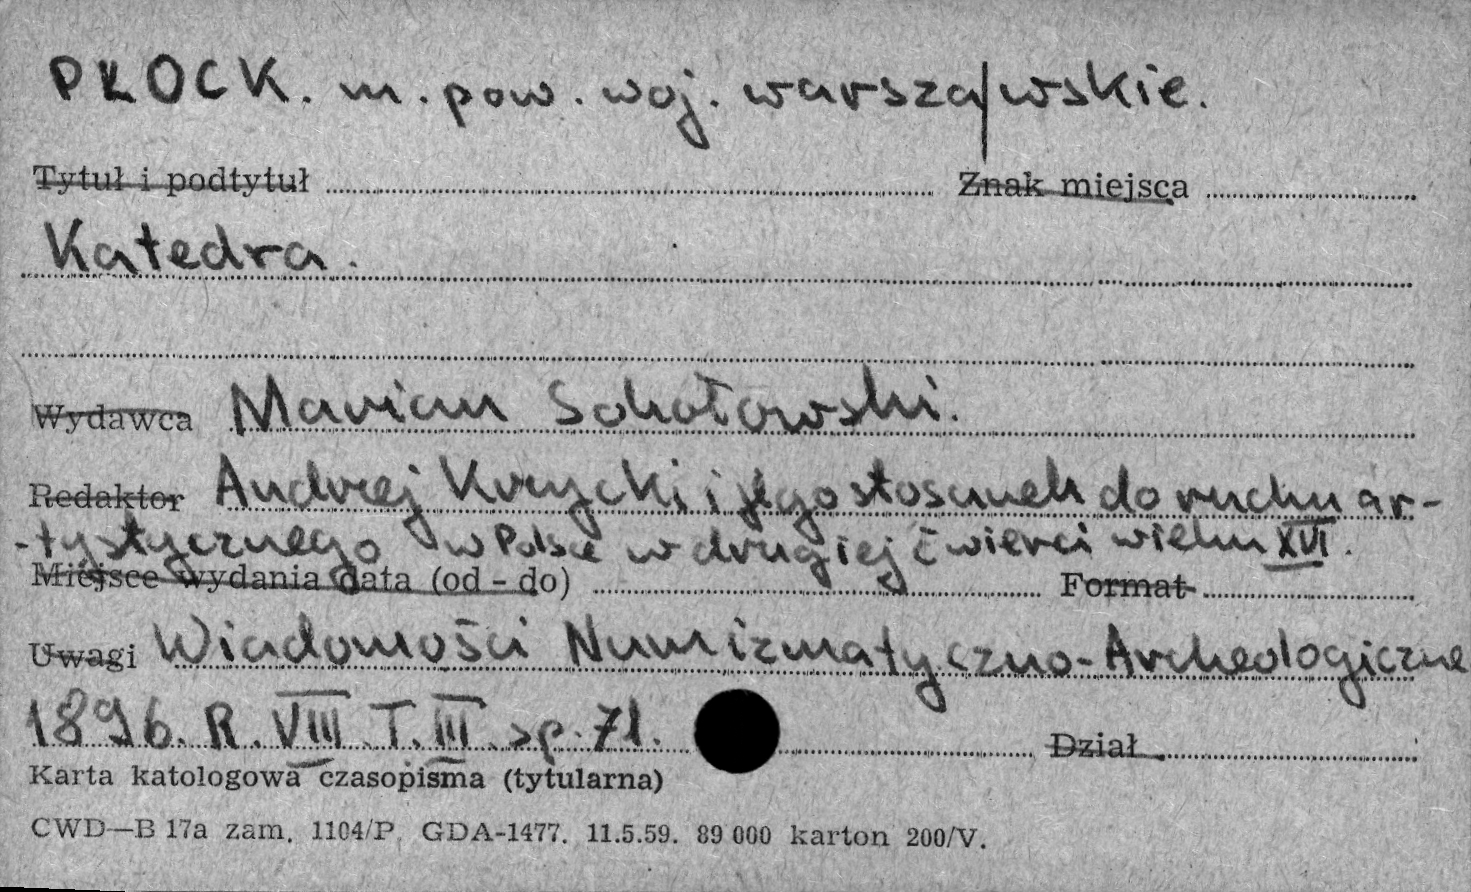 PŁOCK. m. pow. woj. warsza/wskie.
Tytuł i podtytuł Znak miejsca
Katedra.
Wydawca Marian Sokołowski.
Redaktor Andrzej Krzycki i jego stosunek do ruchu ar-
-tystycznego w Polsce w drugiej ćwierci wieku XVI.
Miejsce wydania data (od - do) Format
Uwagi Wiadomości Numizmatyczno-Archeologiczne
1896. R. VIII T. III sp. 71.
Dział
Karta katologowa czasopisma (tytularna)
CWD—B 17a zam. 1104/P. GDA-1477. 11.5.59. 89 000 karton 200/V.